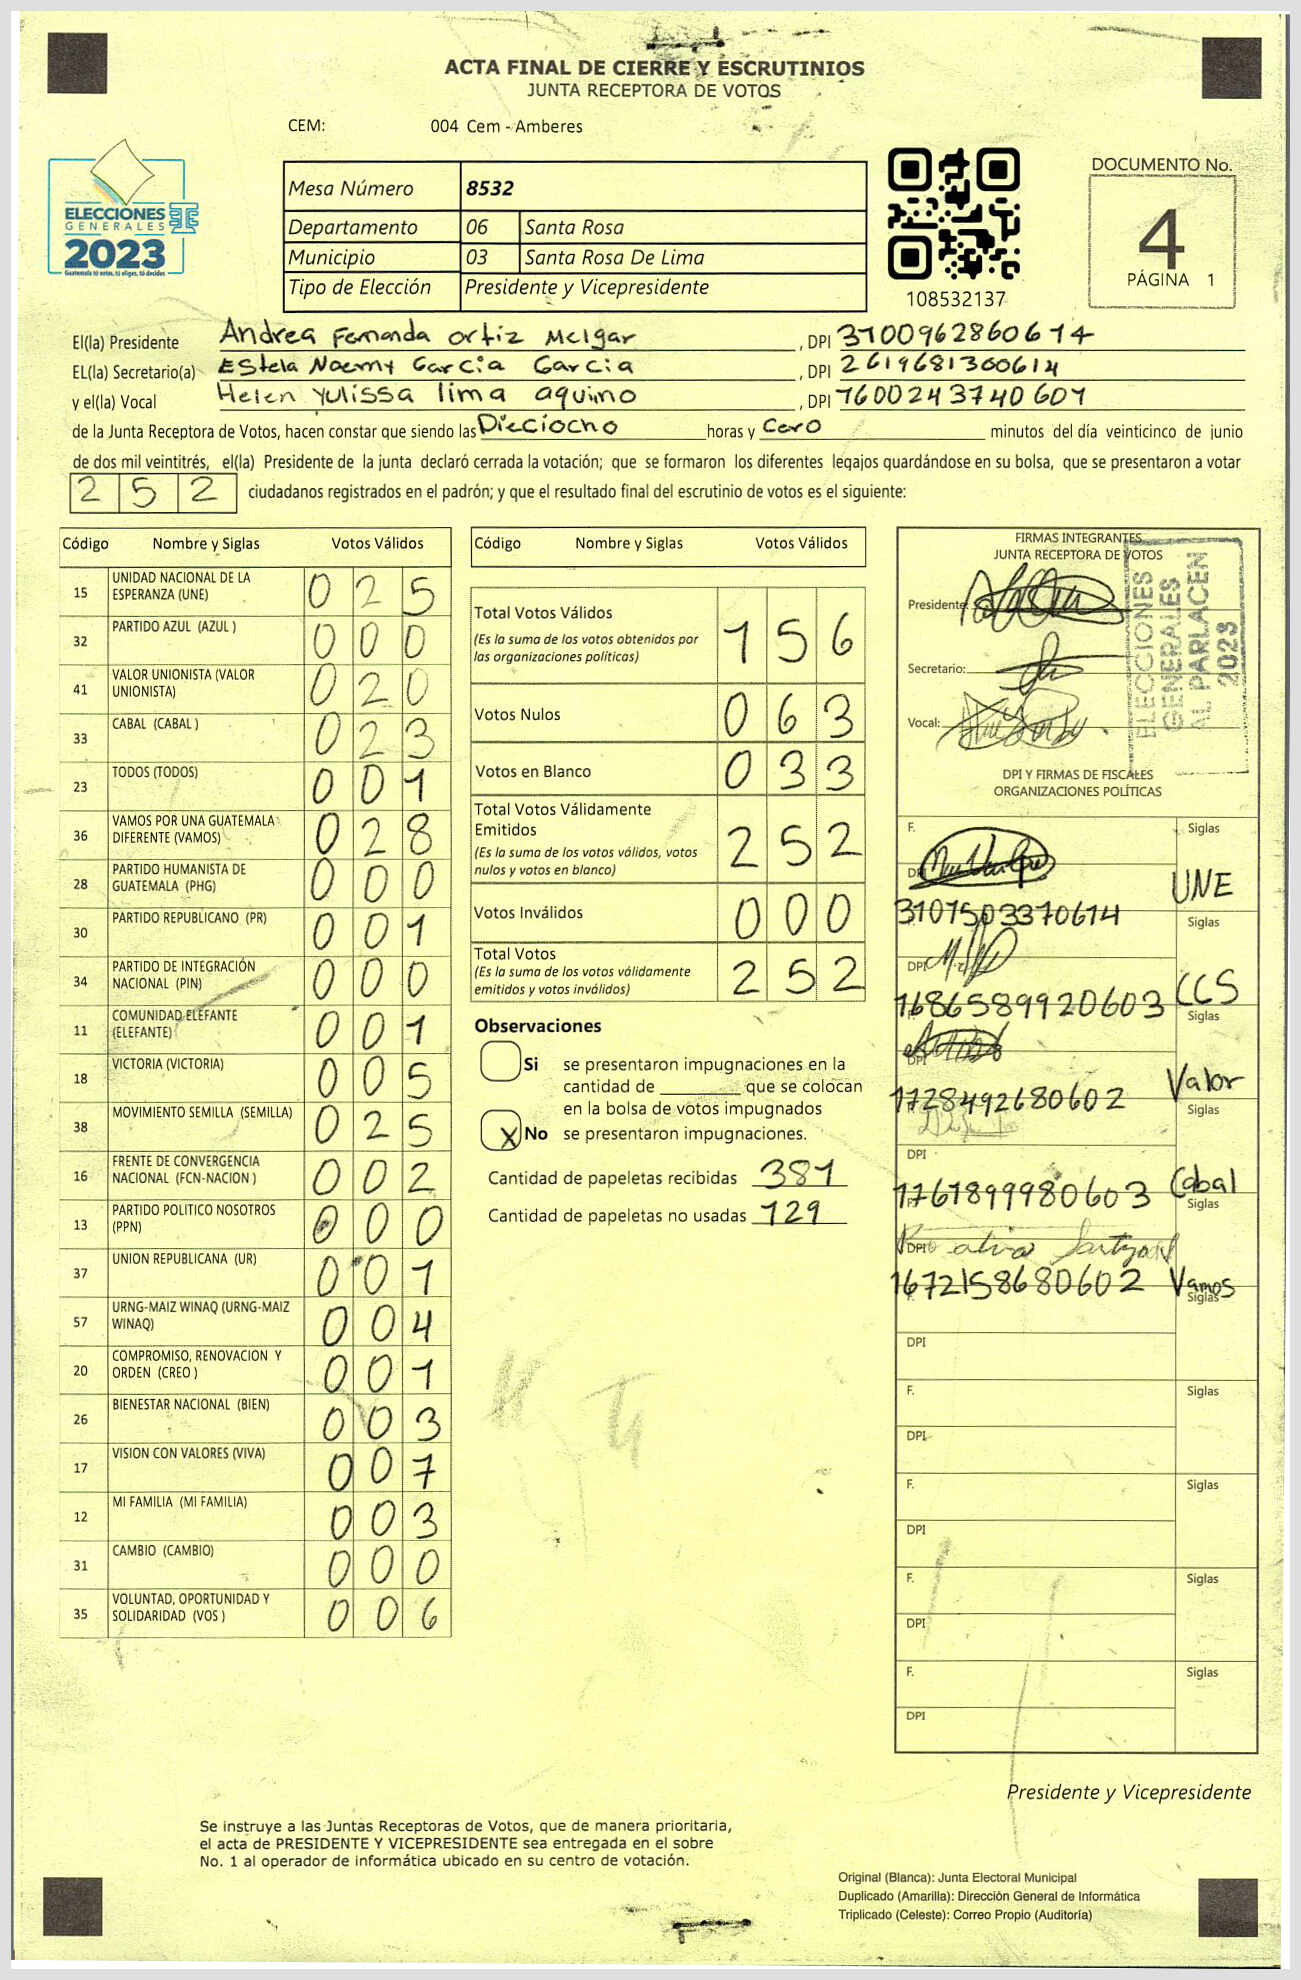 ACTA FINAL DE CIERRE Y ESCRUTINIOS
JUNTA RECEPTORA DE VOTOS
CEM: 004 Cem - Amberes
ELECCIONES
GENERALES
2023
Guatemala tú votas, tú eliges, tú decides
Mesa Número 8532
Departamento 06 Santa Rosa
Municipio 03 Santa Rosa De Lima
Tipo de Elección Presidente y Vicepresidente
108532137
DOCUMENTO No.
4
PÁGINA 1
El(la) Presidente Andrea Fernanda Ortiz Melgar , DPI 3100962860614
EL(la) Secretario(a) EStela Noemy Garcia Garcia , DPI 2619681300614
y el(la) Vocal Helen Yulissa lima aquino , DPI 1600243740601
de la Junta Receptora de Votos, hacen constar que siendo las Dieciocho horas y Cero minutos del día veinticinco de junio
de dos mil veintitrés, el(la) Presidente de la junta declaró cerrada la votación; que se formaron los diferentes legajos quardándose en su bolsa, que se presentaron a votar
252 ciudadanos registrados en el padrón; y que el resultado final del escrutinio de votos es el siguiente:
Código Nombre y Siglas Votos Válidos
15 UNIDAD NACIONAL DE LA ESPERANZA (UNE) 025
32 PARTIDO AZUL (AZUL ) 000
41 VALOR UNIONISTA (VALOR UNIONISTA) 020
33 CABAL (CABAL ) 023
23 TODOS (TODOS) 001
36 VAMOS POR UNA GUATEMALA DIFERENTE (VAMOS) 028
28 PARTIDO HUMANISTA DE GUATEMALA (PHG) 000
30 PARTIDO REPUBLICANO (PR) 001
34 PARTIDO DE INTEGRACIÓN NACIONAL (PIN) 000
11 COMUNIDAD ELEFANTE (ELEFANTE) 001
18 VICTORIA (VICTORIA) 005
38 MOVIMIENTO SEMILLA (SEMILLA) 025
16 FRENTE DE CONVERGENCIA NACIONAL (FCN-NACION ) 002
13 PARTIDO POLITICO NOSOTROS (PPN) 000
37 UNION REPUBLICANA (UR) 001
57 URNG-MAIZ WINAQ (URNG-MAIZ WINAQ) 004
20 COMPROMISO, RENOVACION Y ORDEN (CREO ) 001
26 BIENESTAR NACIONAL (BIEN) 003
17 VISION CON VALORES (VIVA) 007
12 MI FAMILIA (MI FAMILIA) 003
31 CAMBIO (CAMBIO) 000
35 VOLUNTAD, OPORTUNIDAD Y SOLIDARIDAD (VOS ) 006
Código Nombre y Siglas Votos Válidos
Total Votos Válidos 156
(Es la suma de los votos obtenidos por
las organizaciones políticas)
Votos Nulos 063
Votos en Blanco 033
Total Votos Válidamente
Emitidos 252
(Es la suma de los votos válidos, votos
nulos y votos en blanco)
Votos Inválidos 000
Total Votos 252
(Es la suma de los votos válidamente
emitidos y votos inválidos)
Observaciones
Si se presentaron impugnaciones en la
cantidad de ________ que se colocan
en la bolsa de votos impugnados
X No se presentaron impugnaciones.
Cantidad de papeletas recibidas 381
Cantidad de papeletas no usadas 129
FIRMAS INTEGRANTES
JUNTA RECEPTORA DE VOTOS
Presidente:
Secretario:
Vocal:
ELECCIONES
GENERALES
AL PARLACEN
2023
DPI Y FIRMAS DE FISCALES
ORGANIZACIONES POLÍTICAS
F. Siglas
DPI UNE
3107503370614
Siglas
DPI
1686589920603 CCS
Siglas
DPI
1728492680602 Valor
Siglas
DPI
1761899980603 Cabal
Siglas
DPI
1672158680602 Vamos
F. Siglas
DPI
F. Siglas
DPI
F. Siglas
DPI
F. Siglas
DPI
F. Siglas
DPI
Presidente y Vicepresidente
Se instruye a las Juntas Receptoras de Votos, que de manera prioritaria,
el acta de PRESIDENTE Y VICEPRESIDENTE sea entregada en el sobre
No. 1 al operador de informática ubicado en su centro de votación.
Original (Blanca): Junta Electoral Municipal
Duplicado (Amarilla): Dirección General de Informática
Triplicado (Celeste): Correo Propio (Auditoría)